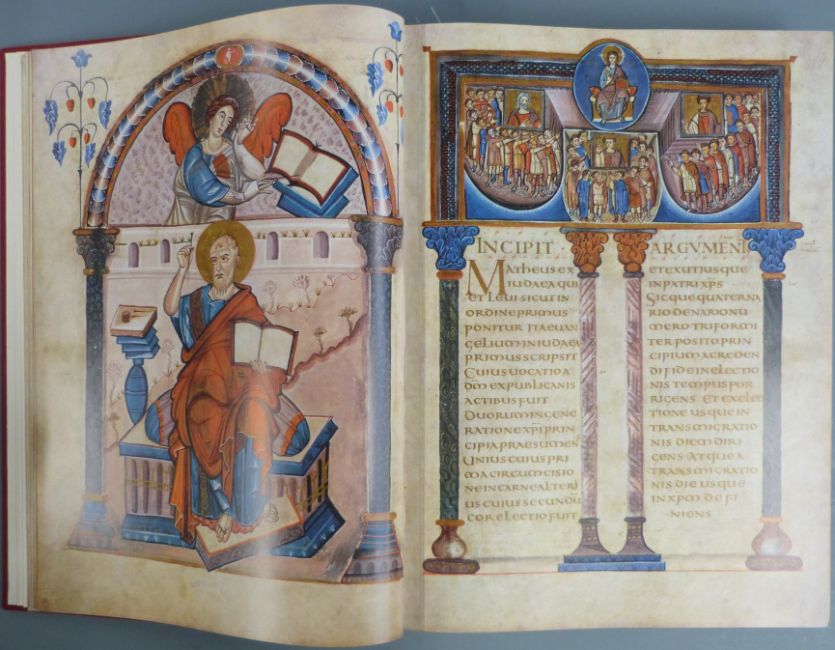 INCIPIT·
MATHEUS EX
IUDAEA QUI
ET LEUI SICUT IN
ORDINE PRIMUS
PONITUR ITA EUAN
GELIUM IN IUDAEA
PRIMUS SCRIPSIT
CUIUS UOCATIO A
DM̄ EX PUBLICANIS
ACTIBUS FUIT
DUORUM IN GENE
RATIONE XP̄I PRIN
CIPIA PRAESUMEN
UNIUS CUIUS PRI
MA CIRCUMCISIO
NE IN CARNE ALTERI
US CUIUS SECUNDU
COR ELECTIO FUIT
ARGVMENT
ET EX UTRISQUE
IN PATRI XP̄S
SICQUE QUATERNA
RIO DENARIO NU
MERO TRIFORMI
TER POSITO PRIN
CIPIUM A CREDEN
DI FIDE IN ELECTIO
NIS TEMPUS POR
RIGENS ET EX ELEC
TIONE USQUE IN
TRANSMIGRATIO
NIS DIEM DIRI
GENS ATQUE A
TRANSMIGRATIO
NIS DIE USQUE
IN XP̄M DEFI
NIENS